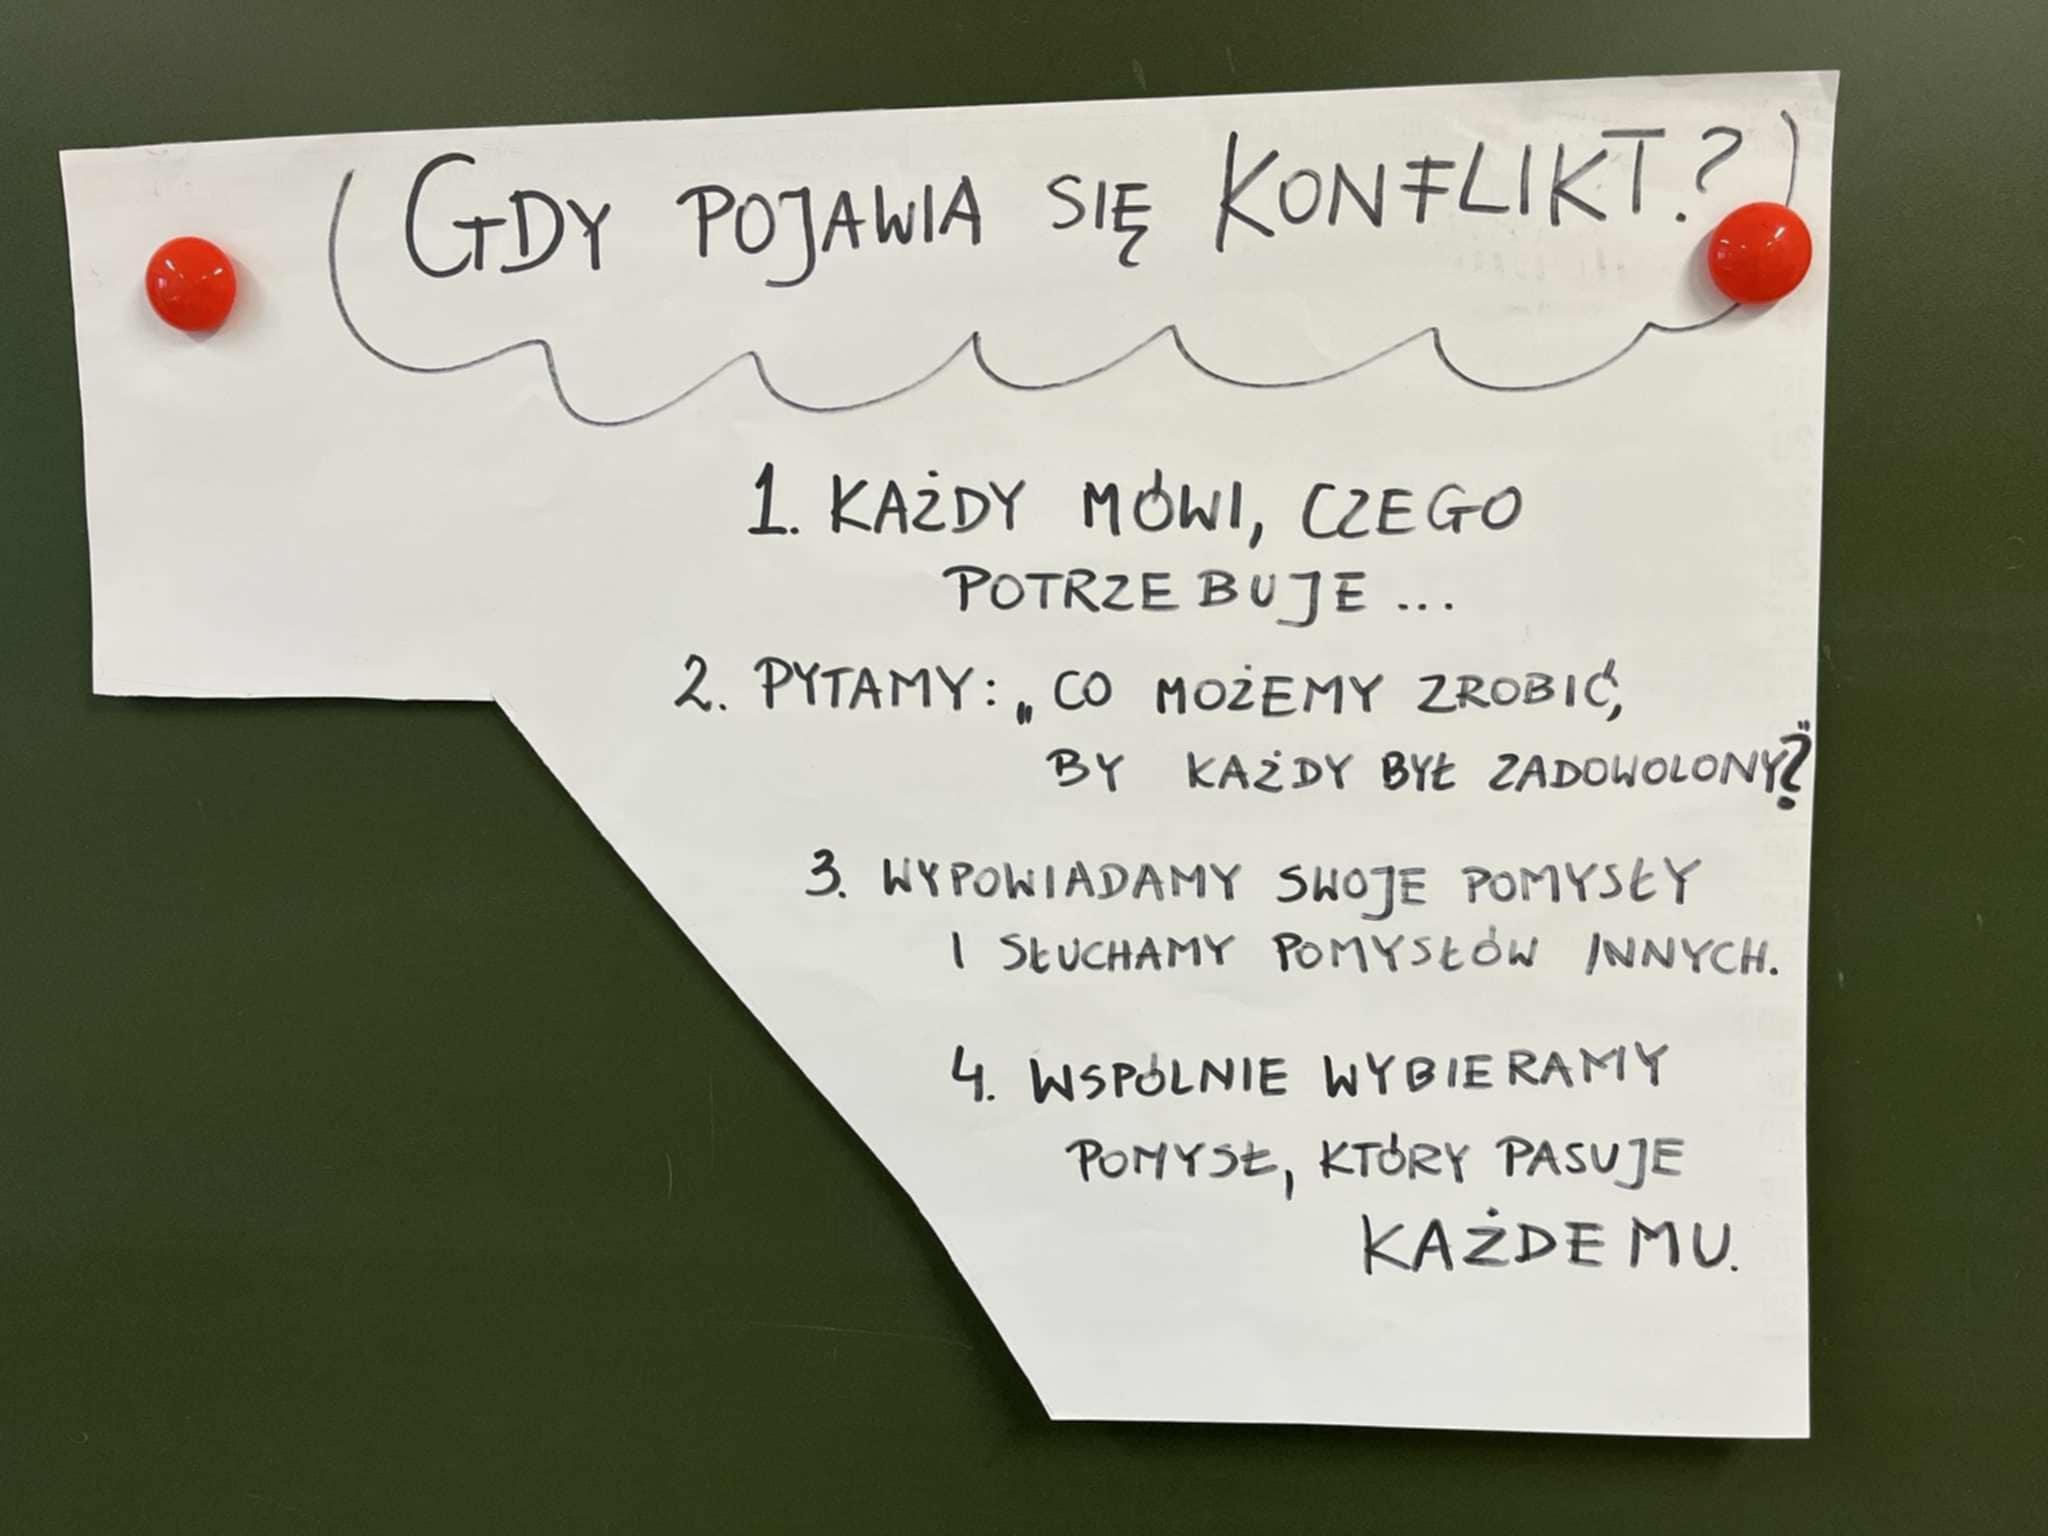 GDY POJAWIA SIĘ KONFLIKT?
1. KAŻDY MÓWI, CZEGO
POTRZEBUJE...
2. PYTAMY: „CO MOŻEMY ZROBIĆ,
BY KAŻDY BYŁ ZADOWOLONY?"
3. WYPOWIADAMY SWOJE POMYSŁY
I SŁUCHAMY POMYSŁÓW INNYCH.
4. WSPÓLNIE WYBIERAMY
POMYSŁ, KTÓRY PASUJE
KAŻDEMU.